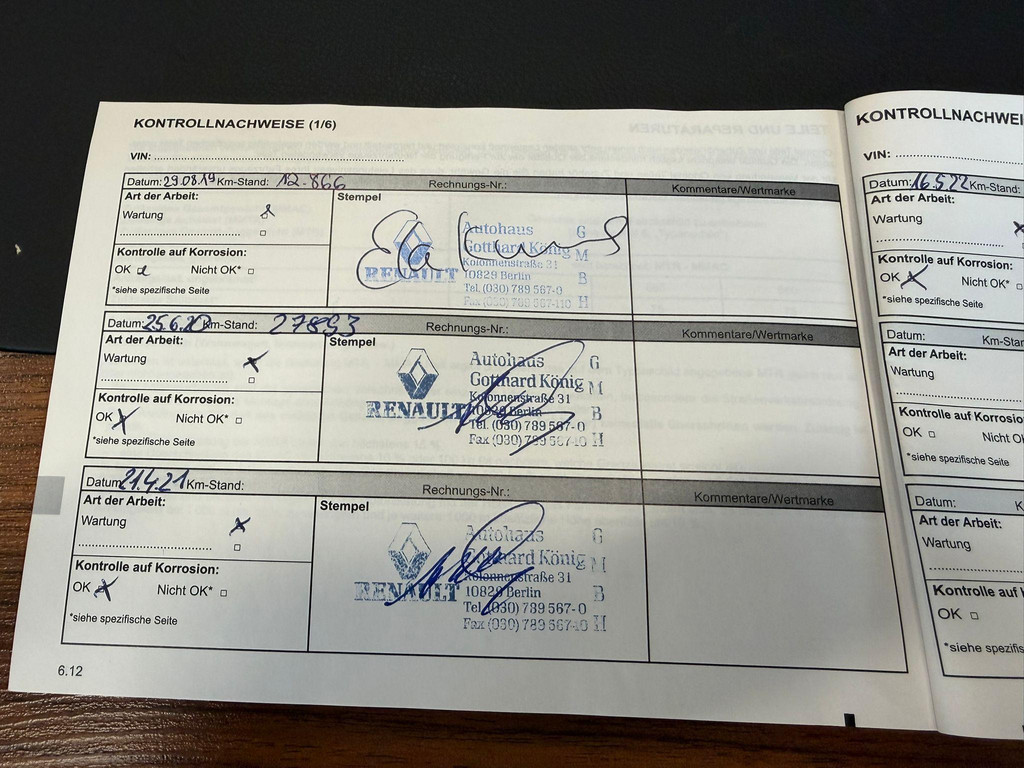 KONTROLLNACHWEISE (1/6)
VIN:
Datum: 29.08.19 Km-Stand: 12.866 Rechnungs-Nr.: Kommentare/Wertmarke
Art der Arbeit: Stempel
Wartung
Autohaus G
Gotthard König M
Kolonnenstraße 31
RENAULT 10829 Berlin B
Tel. (030) 789 567-0
Fax (030) 789 567-110 H
Kontrolle auf Korrosion:
OK Nicht OK*
*siehe spezifische Seite
Datum: 25.6.20 Km-Stand: 27893 Rechnungs-Nr.: Kommentare/Wertmarke
Art der Arbeit: Stempel
Wartung
Autohaus G
Gotthard König M
Kolonnenstraße 31
RENAULT 10829 Berlin B
Tel. (030) 789 567-0
Fax (030) 789 567-10 H
Kontrolle auf Korrosion:
OK Nicht OK*
*siehe spezifische Seite
Datum: 21.4.21 Km-Stand: Rechnungs-Nr.: Kommentare/Wertmarke
Art der Arbeit: Stempel
Wartung
Autohaus G
Gotthard König M
Kolonnenstraße 31
RENAULT 10829 Berlin B
Tel. (030) 789 567-0
Fax (030) 789 567-10 H
Kontrolle auf Korrosion:
OK Nicht OK*
*siehe spezifische Seite
6.12
KONTROLLNACHWEI
VIN:
Datum: 16.5.22 Km-Stand:
Art der Arbeit:
Wartung
Kontrolle auf Korrosion:
OK Nicht OK*
*siehe spezifische Seite
Datum: Km-Star
Art der Arbeit:
Wartung
Kontrolle auf Korrosio
OK Nicht OK
*siehe spezifische Seite
Datum: K
Art der Arbeit:
Wartung
Kontrolle auf K
OK
*siehe spezifis